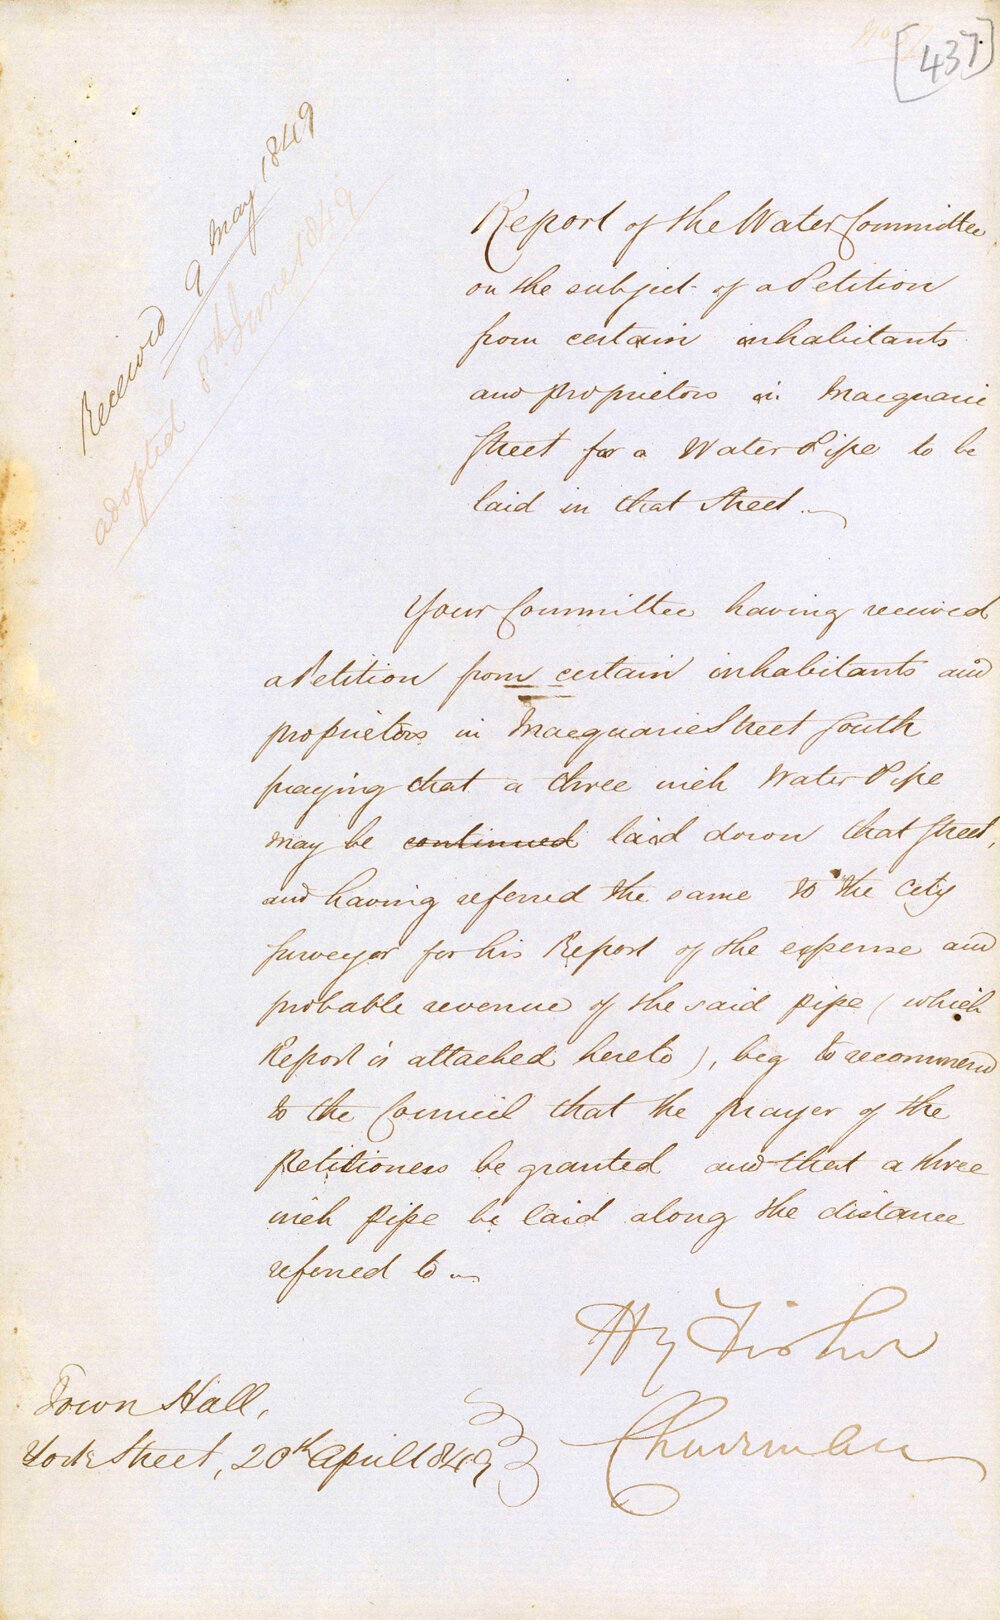 [437]
Received 9 May 1849
adopted 8th June 1849
Report of the Water Committee
on the subject of a Petition
from certain inhabitants
and proprietors in Macquarie
Street for a Water Pipe to be
laid in that Street.
Your Committee having received
a Petition from certain inhabitants and
proprietors in Macquarie Street South
praying that a three inch Water Pipe
may be continued laid down that Street,
and having referred the same to the City
Surveyor for his Report of the expense and
probable revenue of the said pipe (which
Report is attached hereto), beg to recommend
to the Council that the prayer of the
Petitioners be granted and that a three
inch pipe be laid along the distance
referred to
Hy Fisher
Chairman
Town Hall,
York Street, 20th April 1849